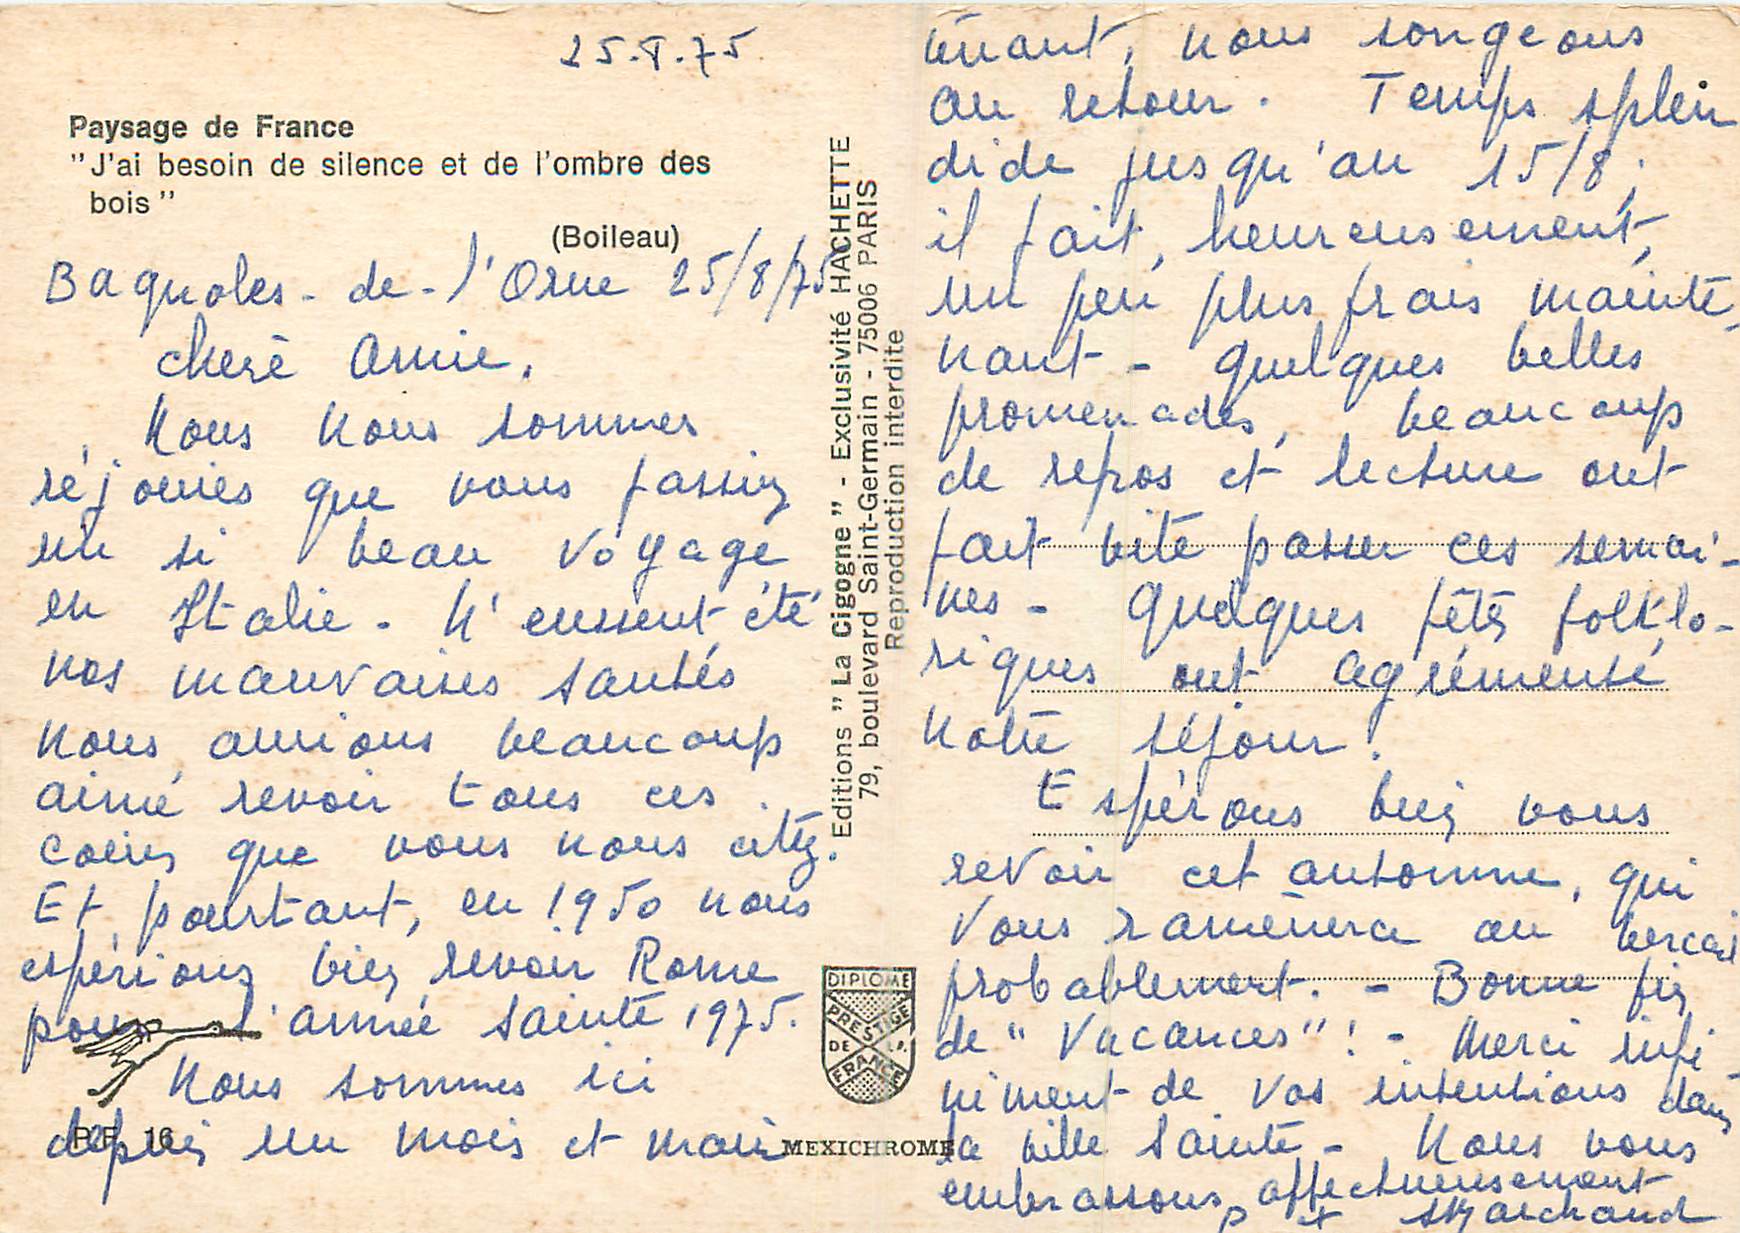 25.8.75
Paysage de France
"J'ai besoin de silence et de l'ombre des
bois"
(Boileau)
Bagnoles-de-l'Orne 25/8/75
chère Amie,
Nous nous sommes
réjouies que vous fassiez
un si beau voyage
en Italie - N'eussent été
nos mauvaises santés
nous aurions beaucoup
aimé revoir tous ces
coins que vous nous citez.
Et pourtant, en 1950 nous
espérions bien revoir Rome
pour l'année sainte 1975.
Nous sommes ici
depuis un mois et main
16
Editions "La Cigogne" - Exclusivité HACHETTE
79, boulevard Saint-Germain - 75006 PARIS
Reproduction interdite
DIPLOME
PRESTIGE
DE LA
FRANCE
MEXICHROME
tenant, nous songeons
au retour. Temps splen
dide jusqu'au 15/8;
il fait, heureusement,
un peu plus frais mainte,
nant - Quelques belles
promenades, beaucoup
de repos et lecture ont
fait vite passer ces semai-
nes - Quelques fêtes folklo-
riques ont agrémenté
notre séjour.
Espérons bien vous
revoir cet automne, qui
vous ramènera au bercail
probablement. - Bonne fin
de "Vacances"! - Merci infi
niment de vos intentions dans
la ville Sainte - Nous vous
embrassons affectueusement
Marchand